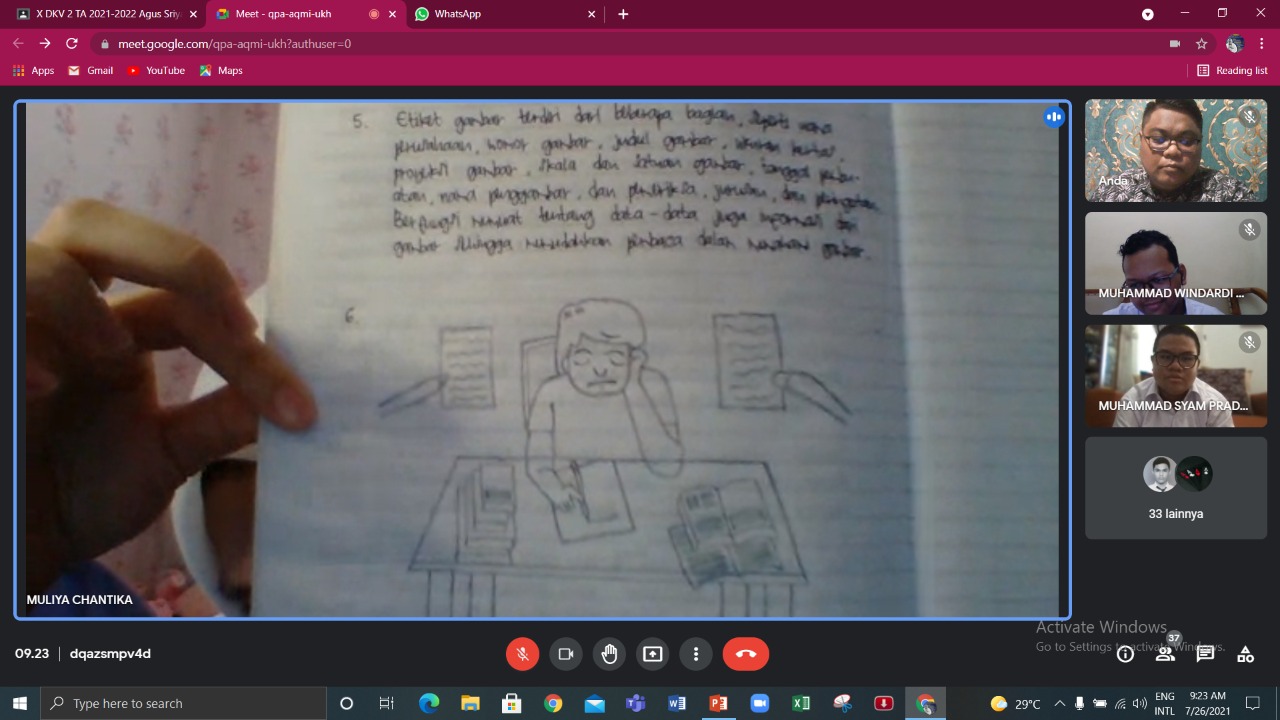 X DKV 2 TA 2021-2022 Agus Sriy
Meet - qpa-aqmi-ukh
WhatsApp
meet.google.com/qpa-aqmi-ukh?authuser=0
Apps
Gmail
YouTube
Maps
Reading list
5. Etiket gambar terdiri dari beberapa bagian, seperti nama
perusahaan, nomor gambar, judul gambar, ukuran kertas,
proyeksi gambar, skala dan satuan gambar, tanggal
nama penggambar, dan pemeriksa, dan
Berfungsi memuat tentang data-data juga informasi
gambar sehingga memudahkan pembaca dalam memahami gambar.
6.
MULIYA CHANTIKA
Anda
MUHAMMAD WINDARDI ...
MUHAMMAD SYAM PRAD...
33 lainnya
09.23 | dqazsmpv4d
37
Activate Windows
Go to Settings to activate Windows.
Type here to search
29°C
ENG
INTL
9:23 AM
7/26/2021